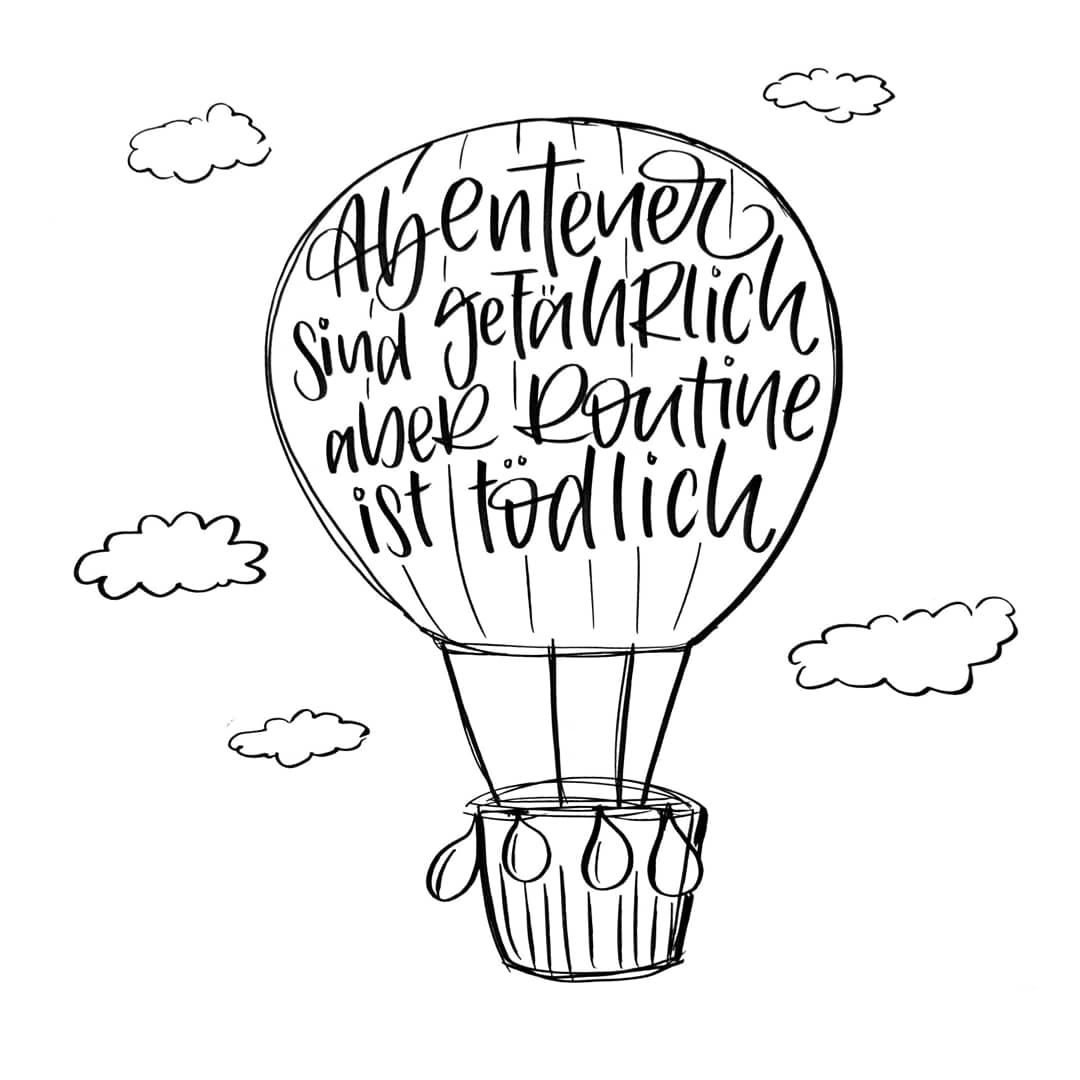 Abenteuer
sind gefährlich
aber Routine
ist tödlich